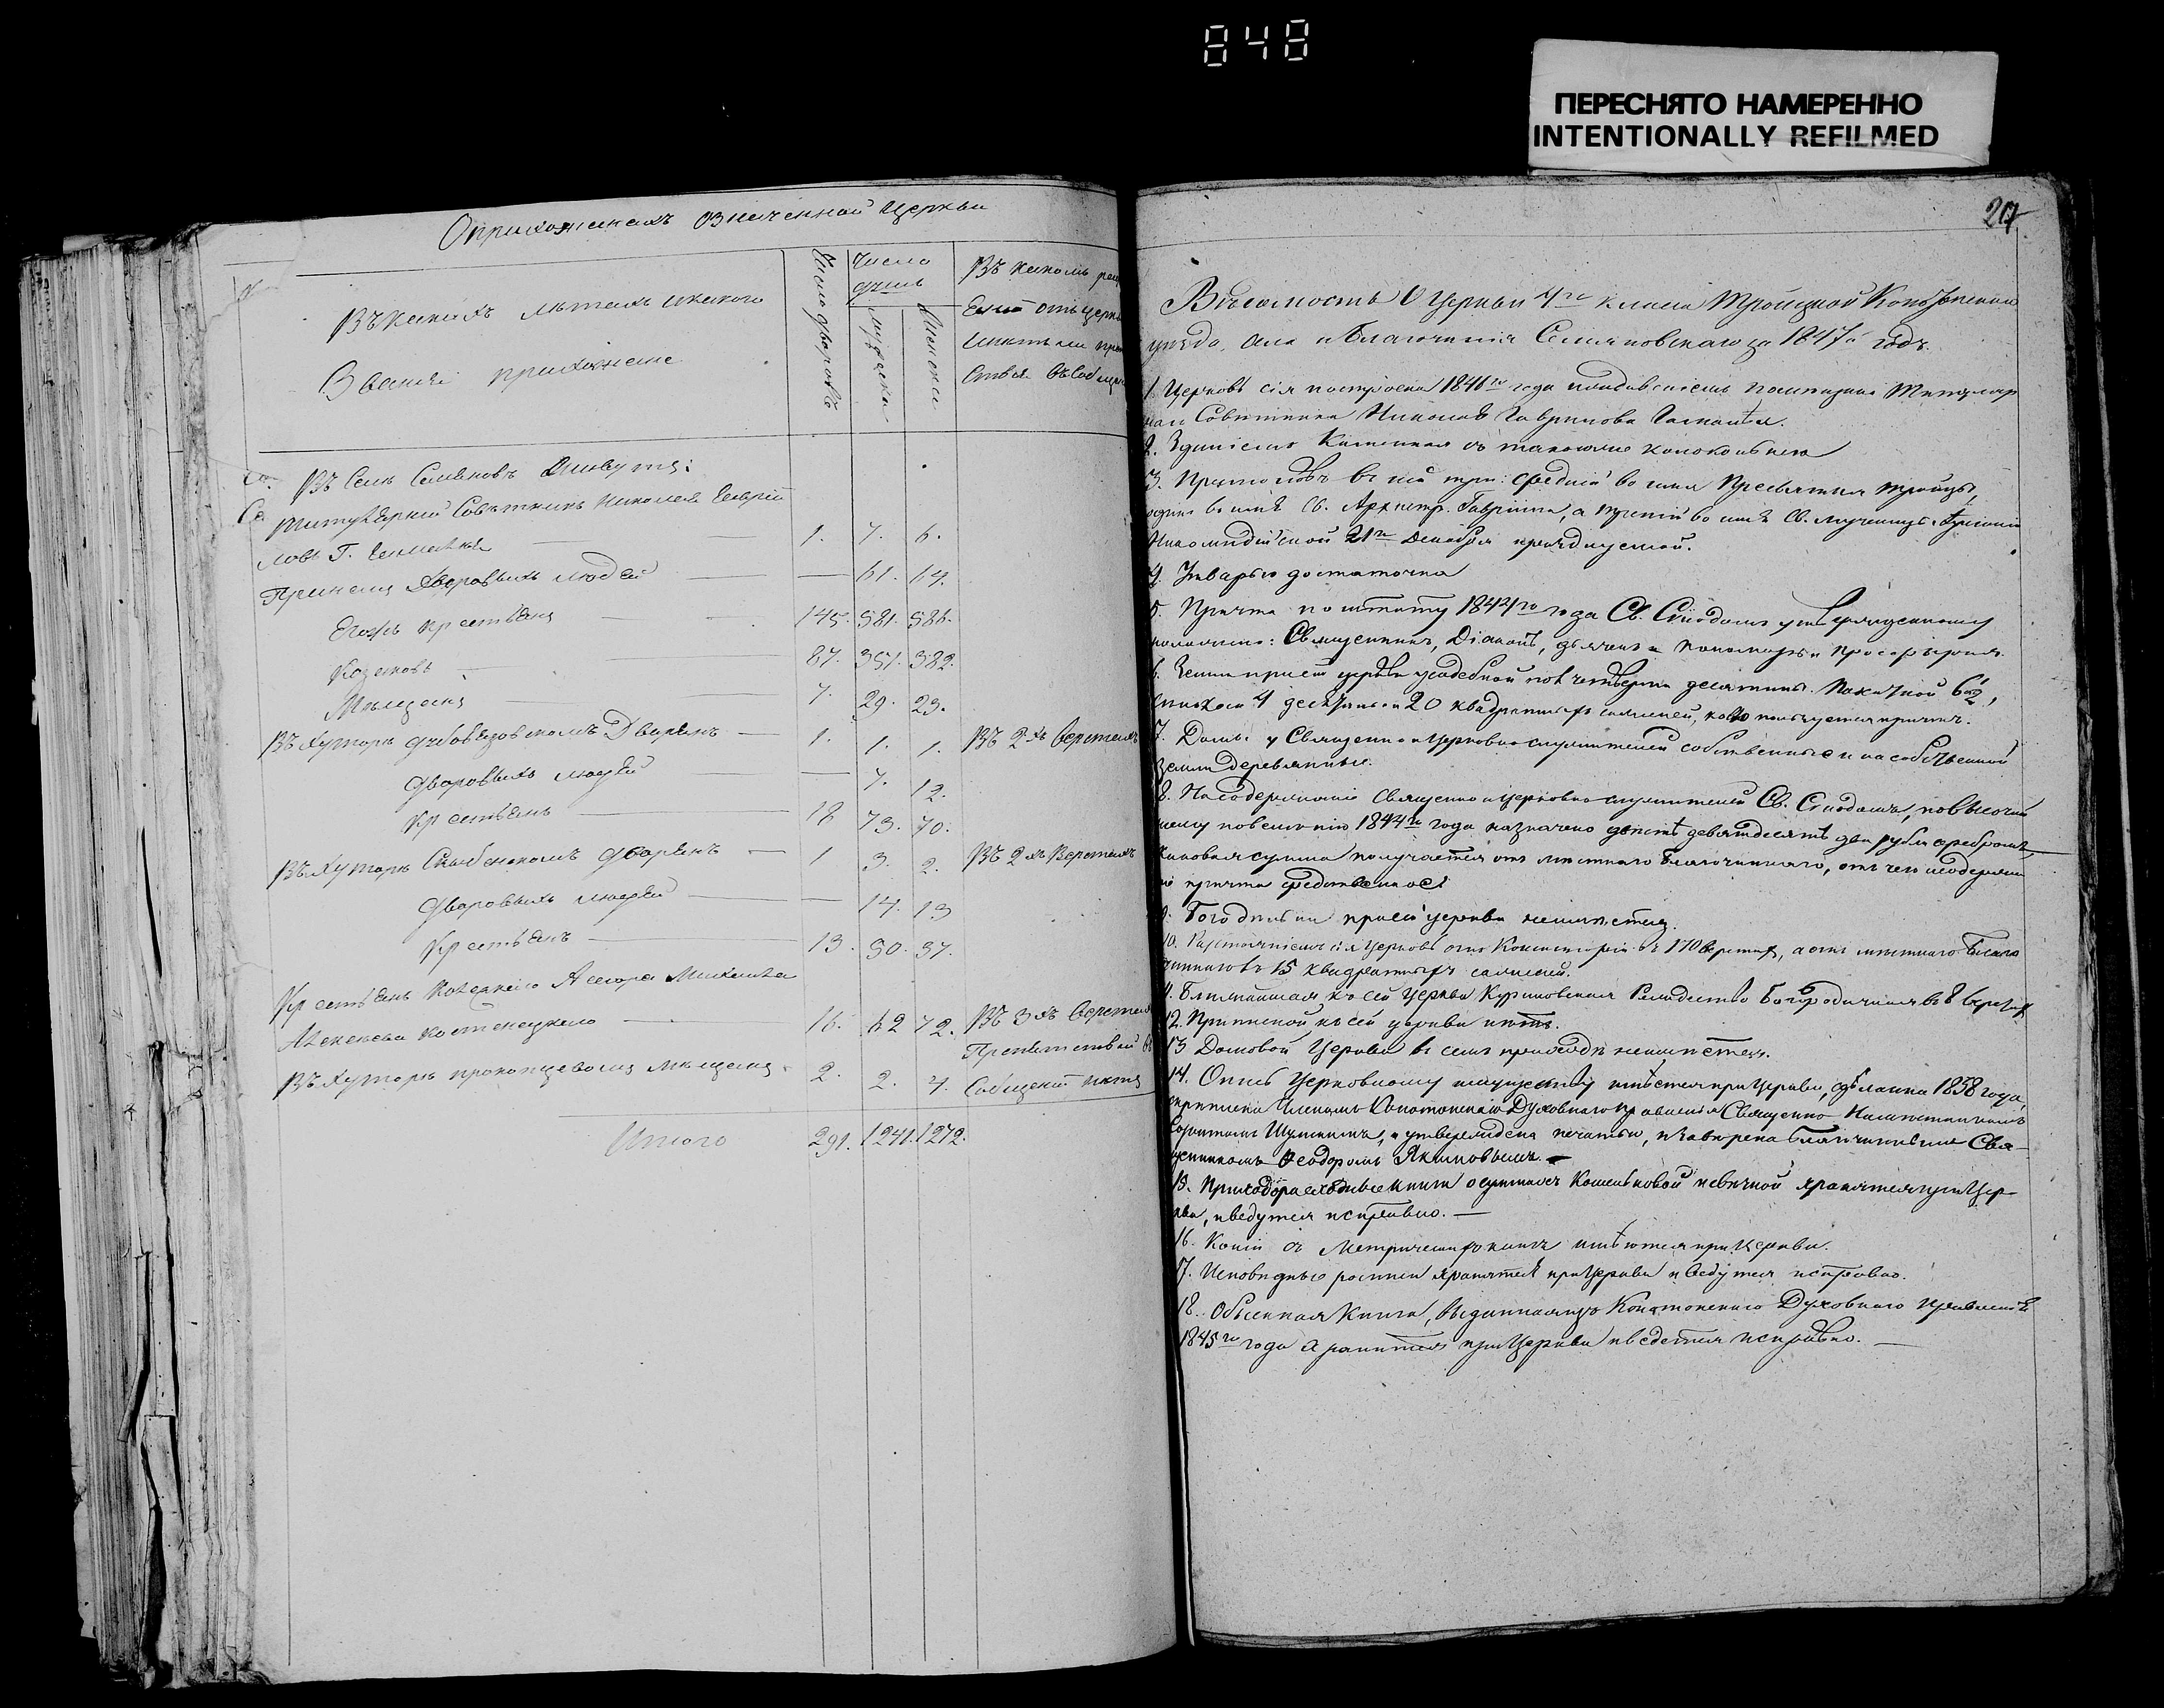 848
ПЕРЕСНЯТО НАМЕРЕННО
INTENTIONALLY REFILMED
О прихожанахъ означенной Церкви
Въ какихъ мѣстахъ и какого
Званія прихожане
Число дворовъ
Число
душъ
мужеска
Женска
Въ какомъ
отъ церкви
Въ Селѣ живутъ:
Титулярный Совѣтникъ Николай Гаврии
ловъ Г. 1. 7. 6.
При немъ Дворовыхъ людей — 61. 64.
Егожъ крестьянъ 145. 581. 586.
Козаковъ 87. 351. 382.
Мѣщанъ 7. 29. 23.
Въ Хуторѣ Дворянъ — 1. 1. 1. Въ 2хъ верстахъ
Дворовыхъ людей — 7. 12.
Крестьянъ — 18 73. 70.
Въ Хуторѣ Дворянъ — 1 3. 2. Въ 2хъ Верстахъ
Дворовыхъ людей — 14. 13
Крестьянъ — 13. 50. 37.
Крестьянъ Асесора Михаила
Алексѣева Костенецкаго — 16. 62 72. Въ 3хъ Верстахъ
Препятствій
Въ Хуторѣ мѣщанъ. 2. 2. 4. Сообщеній нѣтъ
Итого 291. 1241. 1272.
20
Вѣдомость О Церкви 4го класса Тройцкой Конотопскаго
уѣзда, села и Благочинія за 1847й годъ.
1. Церковь сія построена 1846го года помѣщика Титуляр
наго Совѣтника Николая Гаврилова
2. Зданіемъ Каменная съ таковою же колокольнею
3. Престоловъ въ ней три: средній во имя Пресвятыя Тройцы,
одинъ во имя Св. Гавріила, а третій во имя Св. мученицы
Никомидійской 21го Декабря празднуемой.
4. Утварью достаточна
5. Причта по штату 1842го года Св. Сѵнодомъ утвержденному
положено: Священникъ, Діаконъ, дьячокъ и Пономарь и Просфорня.
6. Земли при сей церкви усадебной четверти десятины. Пахатной 6½,
4 десятины и 20 квадратныхъ саженей, коею пользуется причтъ.
7. Домы у Священно и Церковно служителей собственные и на собственной
земли деревянные.
8. На содержаніе Священно и Церковно служителей Св. Сѵнодомъ, по Высочай
шему повеленію 1844го года назначено девятдесятъ два рубля сребромъ,
каковая сумма получается отъ мѣстнаго Благочиннаго, отъ чего и содержа
ніе причта
9. Богодѣльни при сей церкви неимѣется.
10. Разстояніемъ сія Церковь отъ Консисторіи въ 170 верстахъ, а отъ мѣстнаго Благо
чиннаго въ 15 квадратныхъ саженей.
11. Ближайшая къ сей Церкви Рождество Богородичная въ 8 верстахъ
12. Приписной къ сей церкви нѣтъ.
13 Домовой Церкви въ семъ приходѣ неимѣется.
14. Опись Церковному имуществу имѣется при Церкви, сдѣлана 1838 года,
скрѣплена Членомъ Конотопскаго Духовнаго правленія Священно Намѣстникомъ
и утверждена печатью, провѣрена Благочиннымъ Свя-
щенникомъ Ѳеодоромъ Якимовымъ. —
15. Приходорасходные книги о суммахъ Кошельковой и свѣчной хранятся при Цер-
кви, и ведутся исправно. —
16. Копіи съ Метрическихъ книгъ имѣются при Церкви.
17. Исповѣдные росписи хранятся при Церкви и ведутся исправно.
18. Обыскная Книга, выданная изъ Конотопскаго Духовнаго правленія
1845го года хранится при Церкви и ведется исправно. —